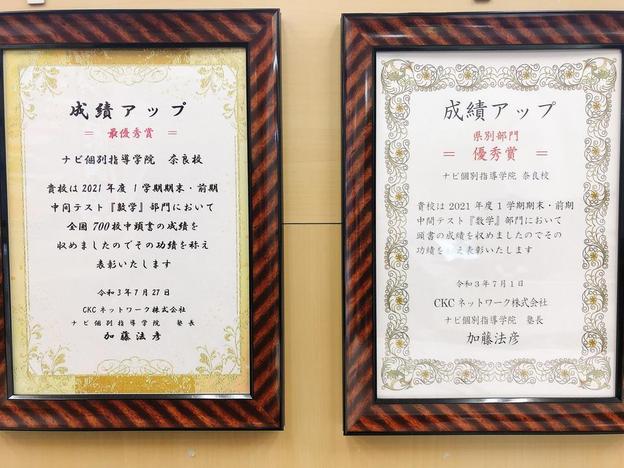 成績アップ
= 最優秀賞 =
ナビ個別指導学院 奈良校
貴校は2021年度1学期期末・前期
中間テスト『数学』部門において
全国700校中頭書の成績を
収めましたのでその功績を称え
表彰いたします
令和3年7月27日
CKCネットワーク株式会社
ナビ個別指導学院 塾長
加藤法彦
成績アップ
県別部門
= 優秀賞 =
ナビ個別指導学院 奈良校
貴校は2021年度1学期期末・前期
中間テスト『数学』部門において
頭書の成績を収めましたのでその
功績を称え表彰いたします
令和3年7月1日
CKCネットワーク株式会社
ナビ個別指導学院 塾長
加藤法彦